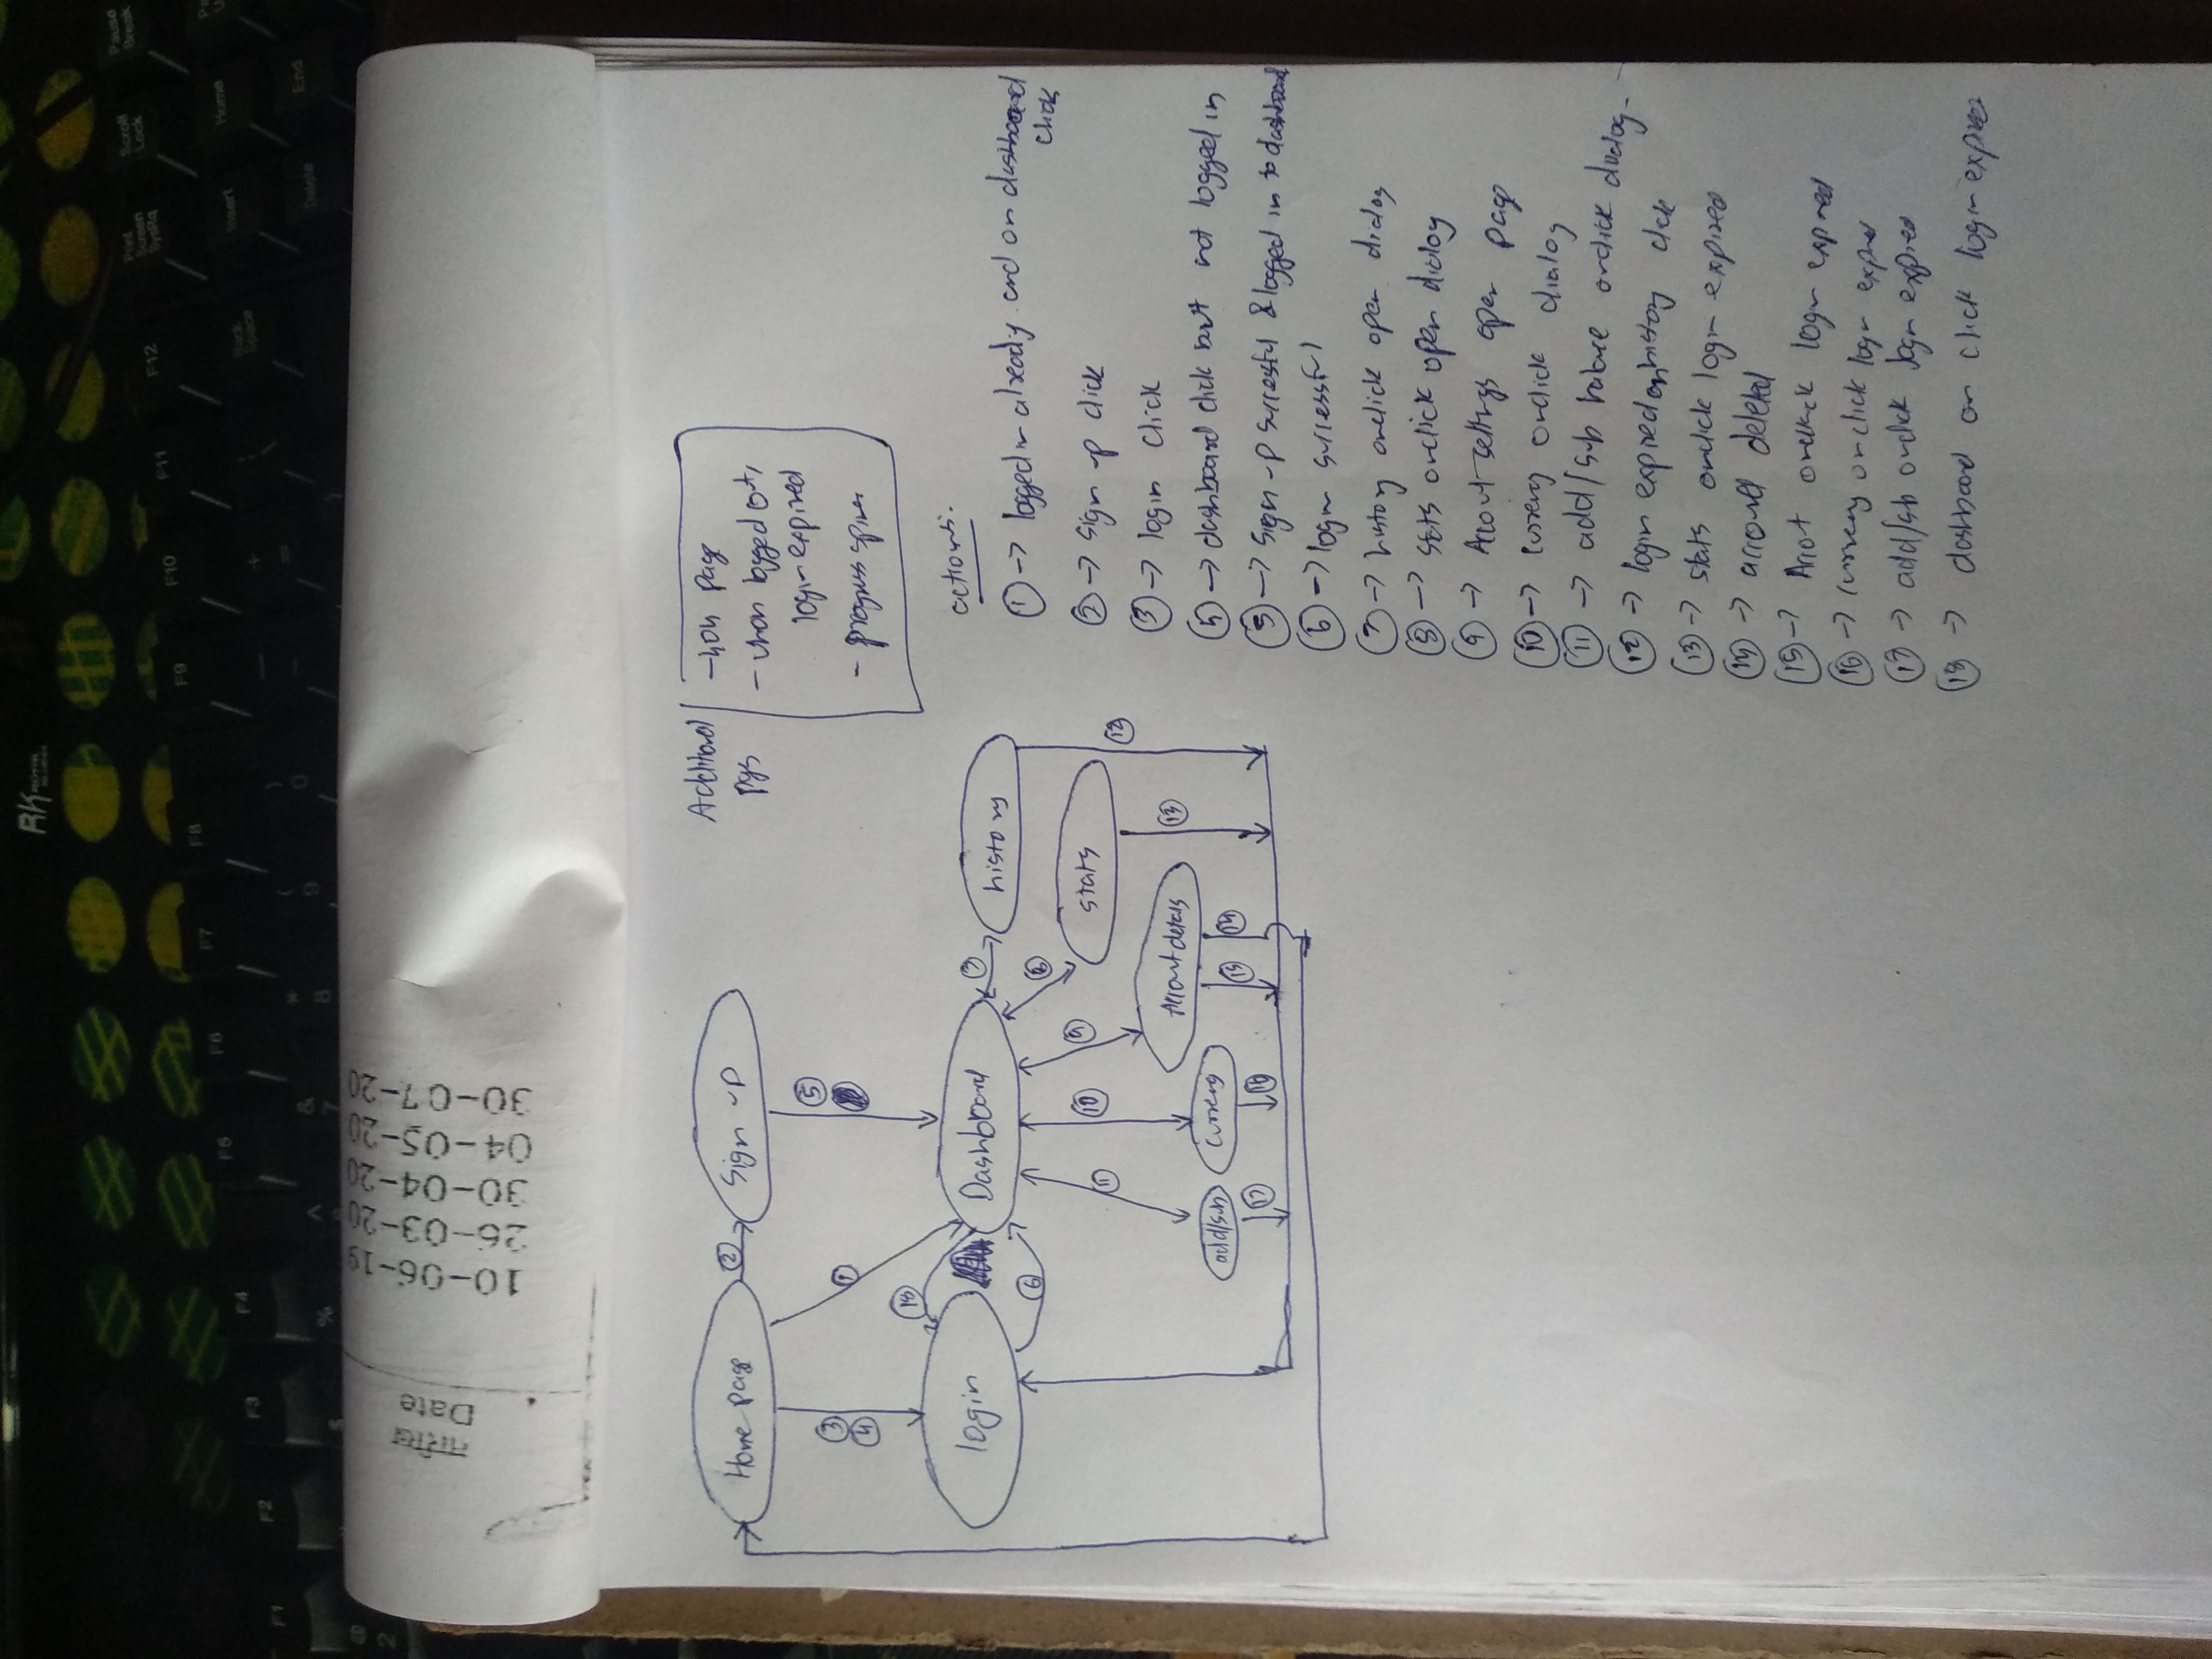 RK ROYAL
Print Screen SysRq
Scroll Lock
Pause Break
F1
F2
F3
F4
F5
F6
F7
F8
F9
F10
F11
F12
Back Space
Insert
Home
Delete
End
@
2
$
%
^
&
7
*
8
(
9
)
0
—
-
+
=
तारीख
Date
10-06-19
26-03-20
30-04-20
04-05-20
30-07-20
Home page
2
Sign up
3
4
1
5
18
login
6
Dashboard
7
history
8
stats
11
10
9
12
Account details
13
add/sub
currency
17
16
15
14
Additional pgs
- 404 page
- when logged out,
login expired
- progress spinner
actions:
1 → logged in already and on dashboard
click
2 → sign up click
3 → login click
4 → dashboard click but not logged in
5 → Sign-up successful & logged in to dashboard
6 → login successful
7 → history onclick open dialog
8 → stats onclick open dialog
9 → Account settings open page
10 → currency onclick dialog
11 → add/sub balance onclick dialog
12 → login expired on history click
13 → stats onclick login expired
14 → account deleted
15 → Account onclick login expired
16 → currency onclick login expired
17 → add/sub onclick login expired
18 → dashboard on click login expired